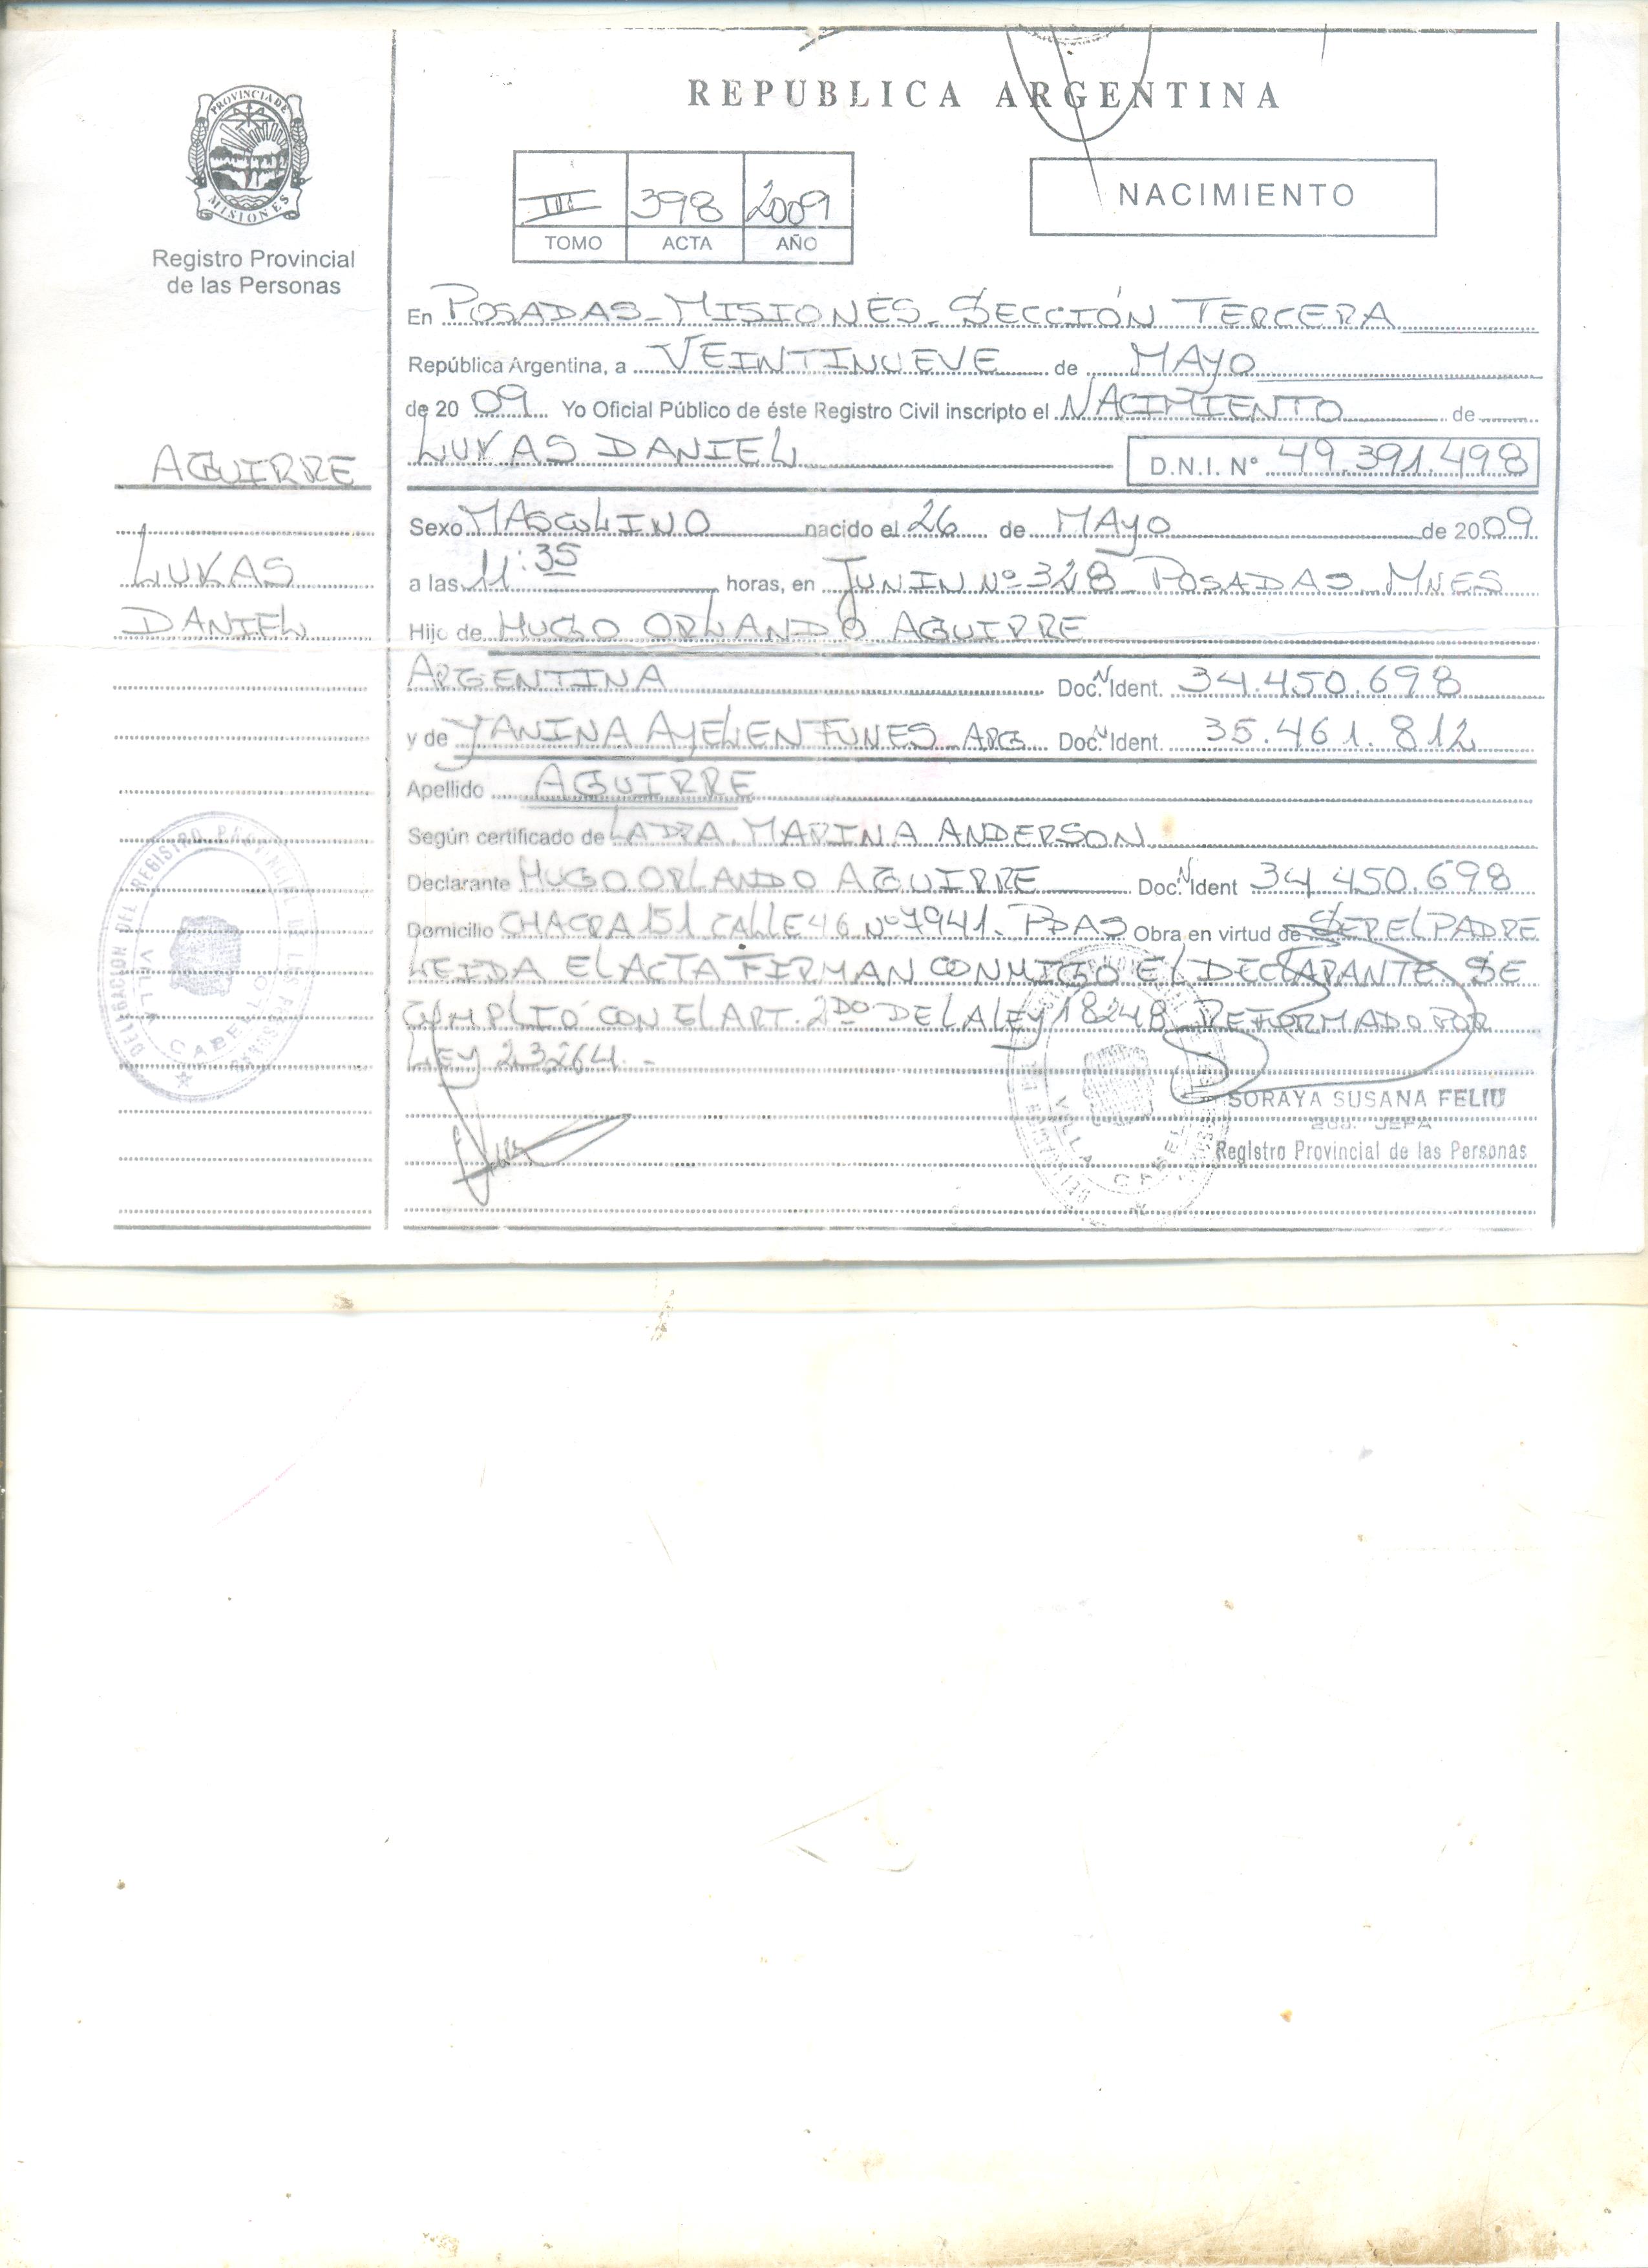 PROVINCIA DE
MISIONES
Registro Provincial
de las Personas
AGUIRRE
LUKAS
DANIEL
DELEGACION DEL REGISTRO PROVINCIAL DE LAS PERSONAS
VILLA CABELLO
REPUBLICA ARGENTINA
III 398 2009
TOMO ACTA AÑO
NACIMIENTO
En POSADAS - MISIONES - SECCIÓN TERCERA
República Argentina, a VEINTINUEVE de MAYO
de 2009 Yo Oficial Público de éste Registro Civil inscripto el NACIMIENTO de
LUKAS DANIEL D.N.I. Nº 49.391.498
Sexo MASCULINO nacido el 26 de MAYO de 2009
a las 11:35 horas, en JUNIN Nº 328 - POSADAS - MNES
Hijo de HUGO ORLANDO AGUIRRE
ARGENTINA Doc. N Ident. 34.450.698
y de YANINA AYELEN FUNES - ARG. Doc. N Ident. 35.461.812
Apellido AGUIRRE
Según certificado de LA DRA. MARINA ANDERSON
Declarante HUGO ORLANDO AGUIRRE Doc. N Ident 34 450.698
Domicilio CHACRA 151 CALLE 46 Nº 7941 - PDAS Obra en virtud de SER EL PADRE
LEIDA EL ACTA FIRMAN CONMIGO EL DECLARANTE SE
CUMPLIÓ CON EL ART. 2DO DE LA LEY 18248 REFORMADO POR
LEY 23.264.-
SORAYA SUSANA FELIU
JEFA
Registro Provincial de las Personas
VILLA CABEL